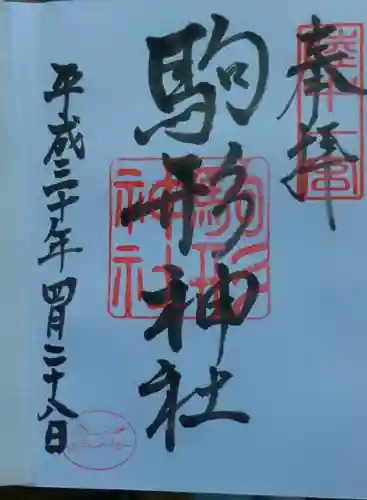 奉拝
駒形神社
平成三十年四月二十八日
陸中一宮
駒形神社